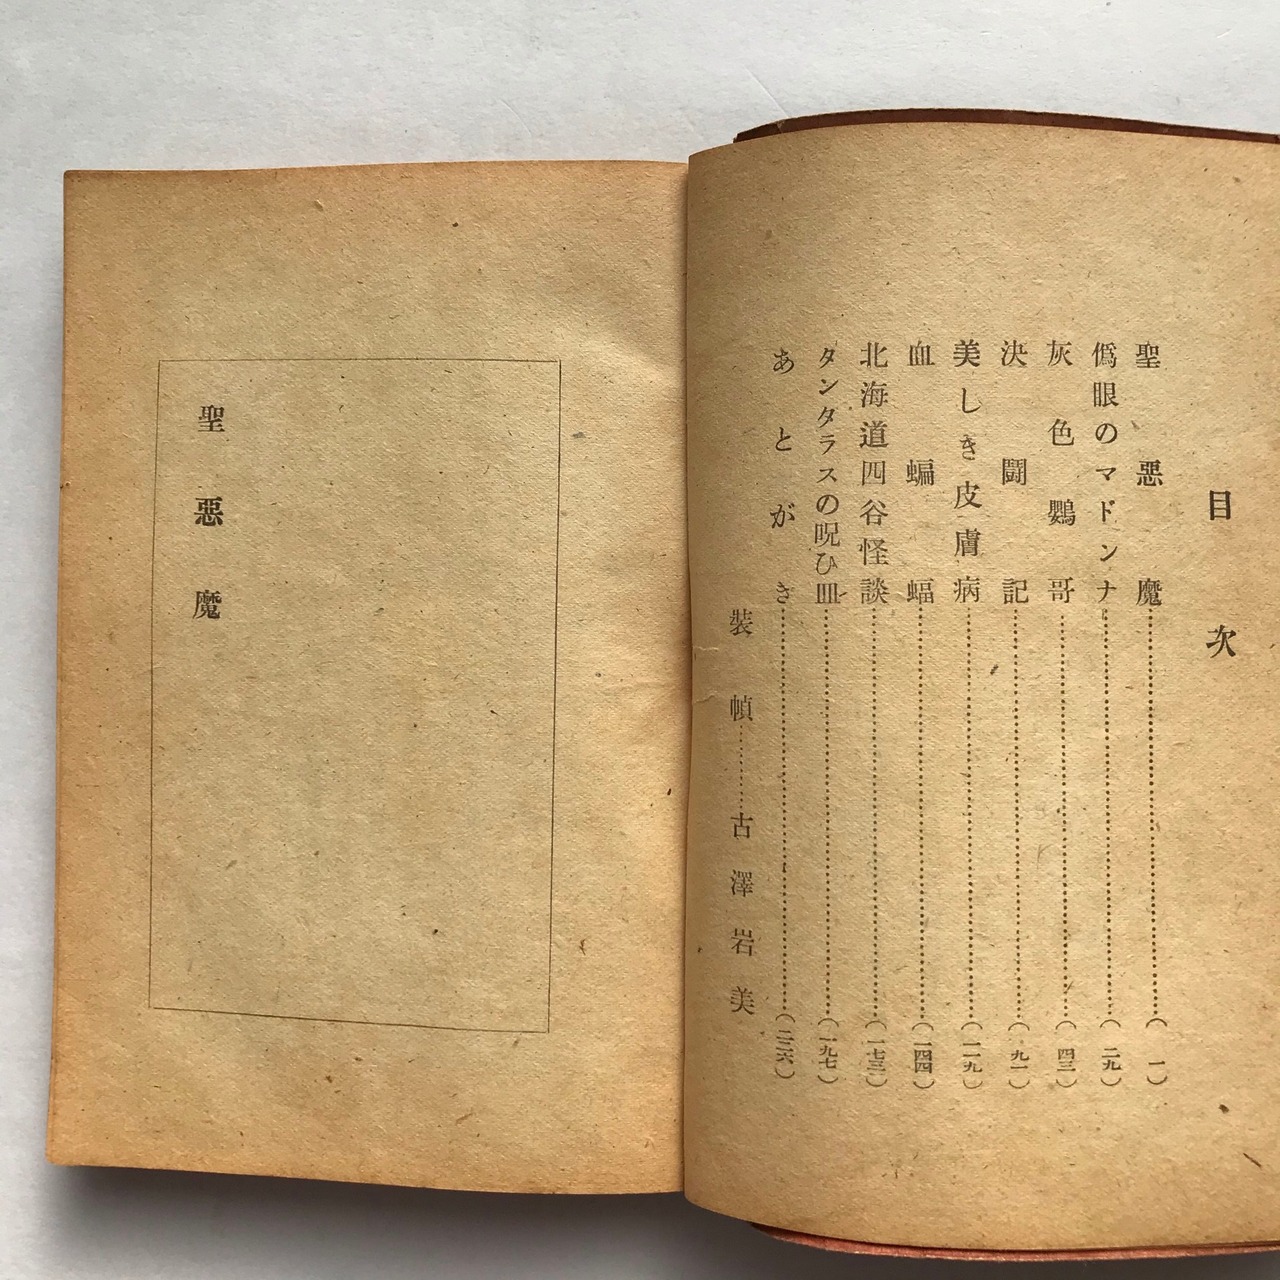 目次
聖惡魔……(一)
僞眼のマドンナ……(二九)
灰色鸚哥……(四三)
決闘記……(九一)
美しき皮膚病……(一一九)
血蝙蝠……(一四四)
北海道四谷怪談……(一七三)
タンタラスの呪ひ皿……(一九七)
あとがき……(二二六)
裝幀……古澤岩美
聖惡魔